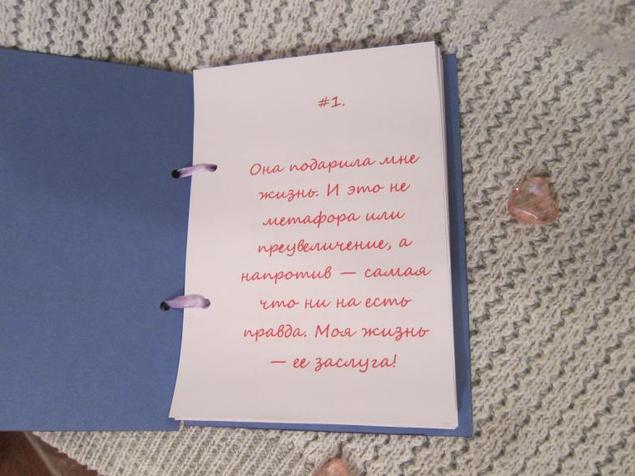 #1.
Она подарила мне
жизнь. И это не
метафора или
преувеличение, а
напротив — самая
что ни на есть
правда. Моя жизнь
— ее заслуга!